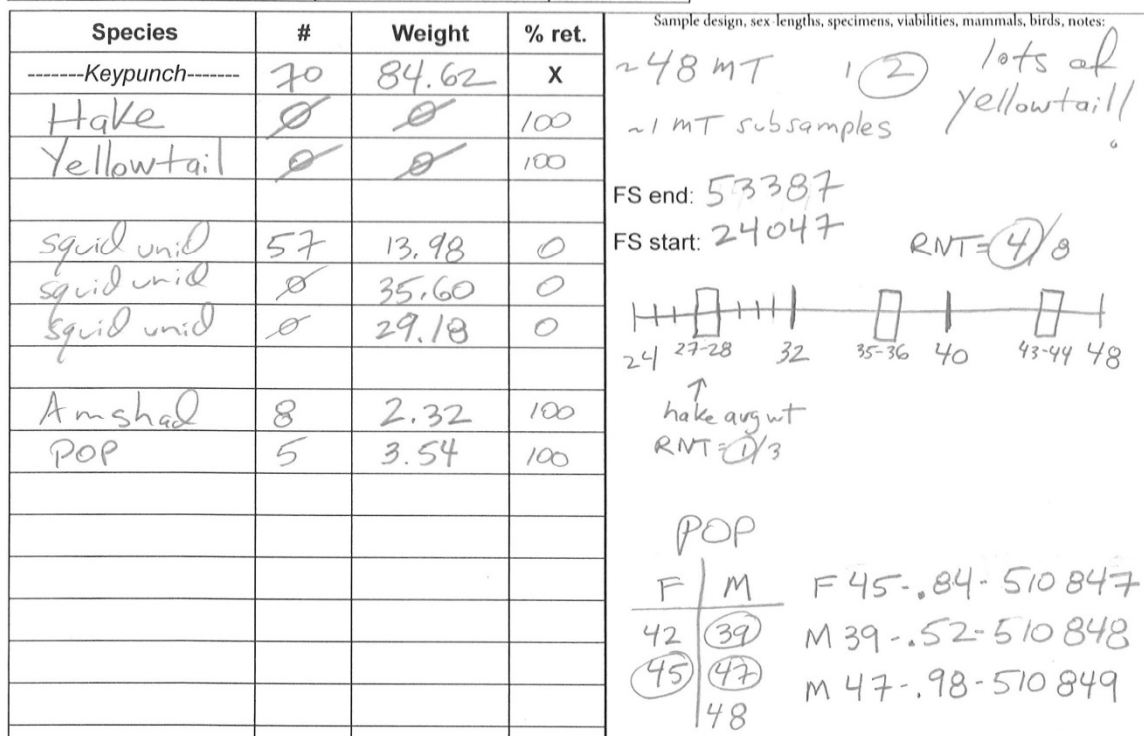 Species # Weight % ret.
-------Keypunch------- 70 84.62 X
Hake Ø Ø 100
Yellowtail Ø Ø 100
squid unid 57 13.98 0
squid unid Ø 35.60 0
squid unid Ø 29.18 0
Amshad 8 2.32 100
POP 5 3.54 100
Sample design, sex-lengths, specimens, viabilities, mammals, birds, notes:
~48 MT 1 2 lots of
yellowtail!
~1 MT subsamples
FS end: 53387
FS start: 24047 RNT=4/8
24 27-28 32 35-36 40 43-44 48
↑
hake avg wt
RNT=1/3
POP
F M
42 39
45 47
48
F 45-.84-510847
M 39-.52-510848
M 47-.98-510849